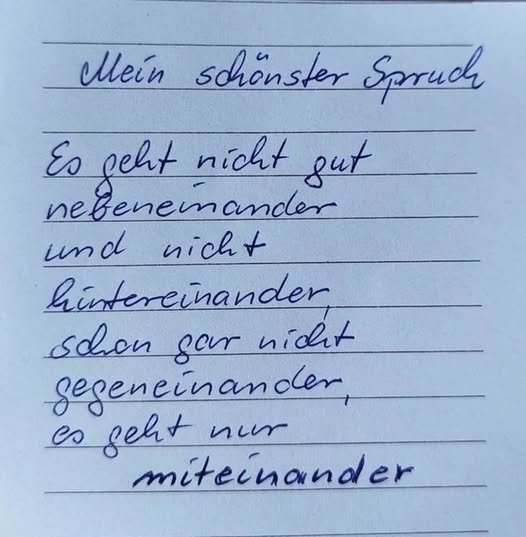 Mein schönster Spruch
Es geht nicht gut
nebeneinander
und nicht
hintereinander,
schon gar nicht
gegeneinander,
es geht nur
miteinander